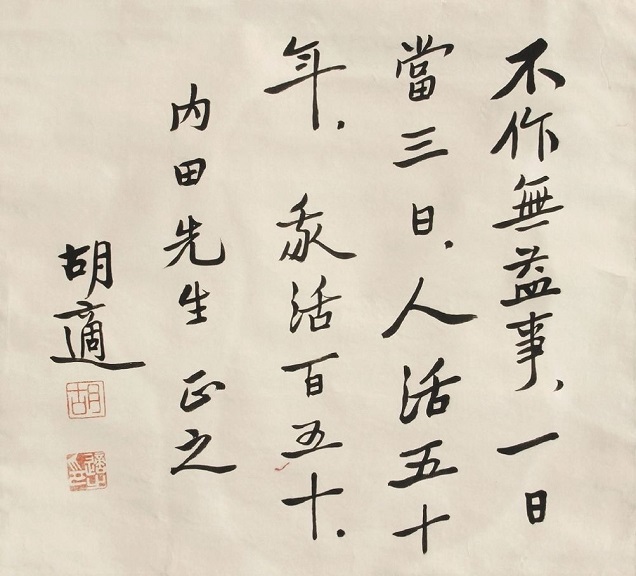 不作無益事，一日
當三日，人活五十
年，我活百五十．
内田先生 正之
胡適
胡
適之